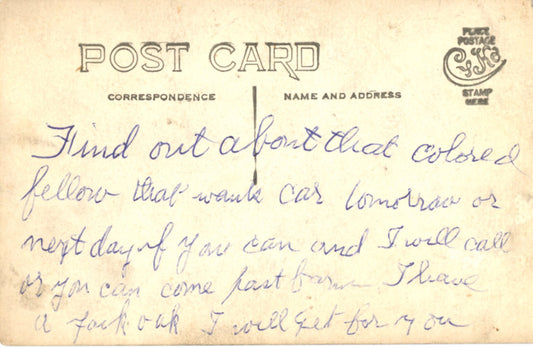 POST CARD
PLACE
POSTAGE
STAMP
HERE
CORRESPONDENCE
NAME AND ADDRESS
Find out about that colored
fellow that wants car tomorrow or
next day if you can and I will call
or you can come past barn I have
a oak I will get for you